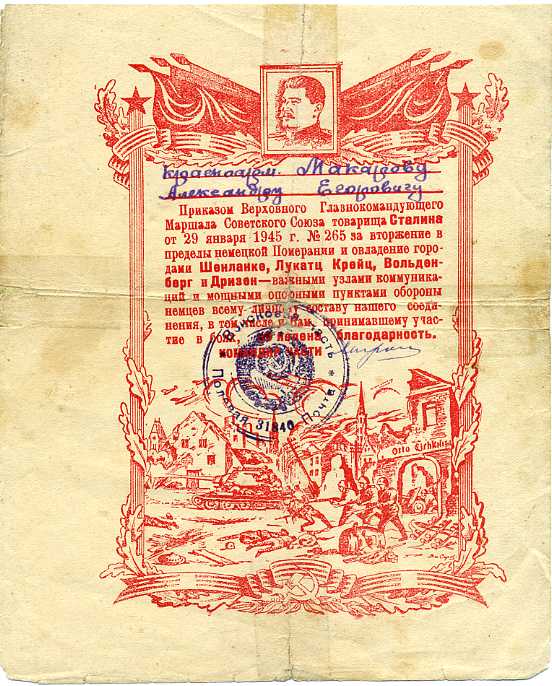 красноарм. Макарову
Александру Егоровичу
Приказом Верховного Главнокомандующего
Маршала Советского Союза товарища Сталина
от 29 января 1945 г. № 265 за вторжение в
пределы немецкой Померании и овладение горо-
дами Шенланке, Лукатц Крейц, Вольден-
берг и Дризен—важными узлами коммуника-
ций и мощными опорными пунктами обороны
немцев всему личному составу нашего соеди-
нения, в том числе и Вам, принимавшему учас-
тие в боях, объявлена благодарность.
командир части
Войсковая часть
Полевая 31840 Почта
Otto